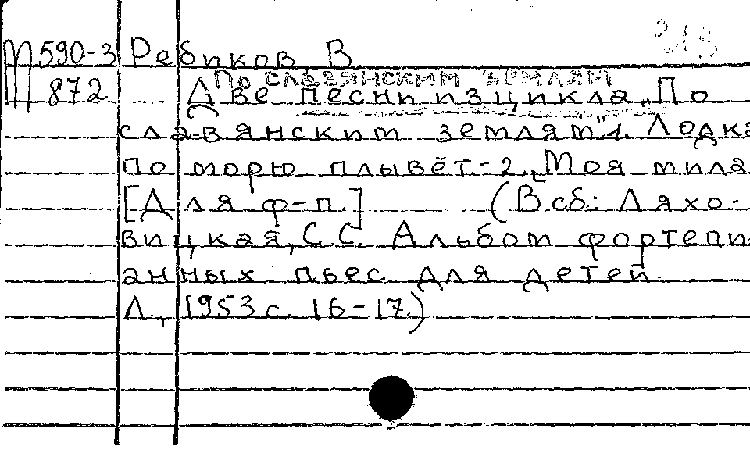 218
М 590-3 Ребиков В
По славянским землям
872 Две песни из цикла „По
славянским землям" 1. Лодка
по морю плывёт-2. „Моя мила
[Для ф-п.] (В сб.: Ляхо-
вицкая, С.С. Альбом фортепи
анных пьес для детей
Л., 1953 с. 16-17.)